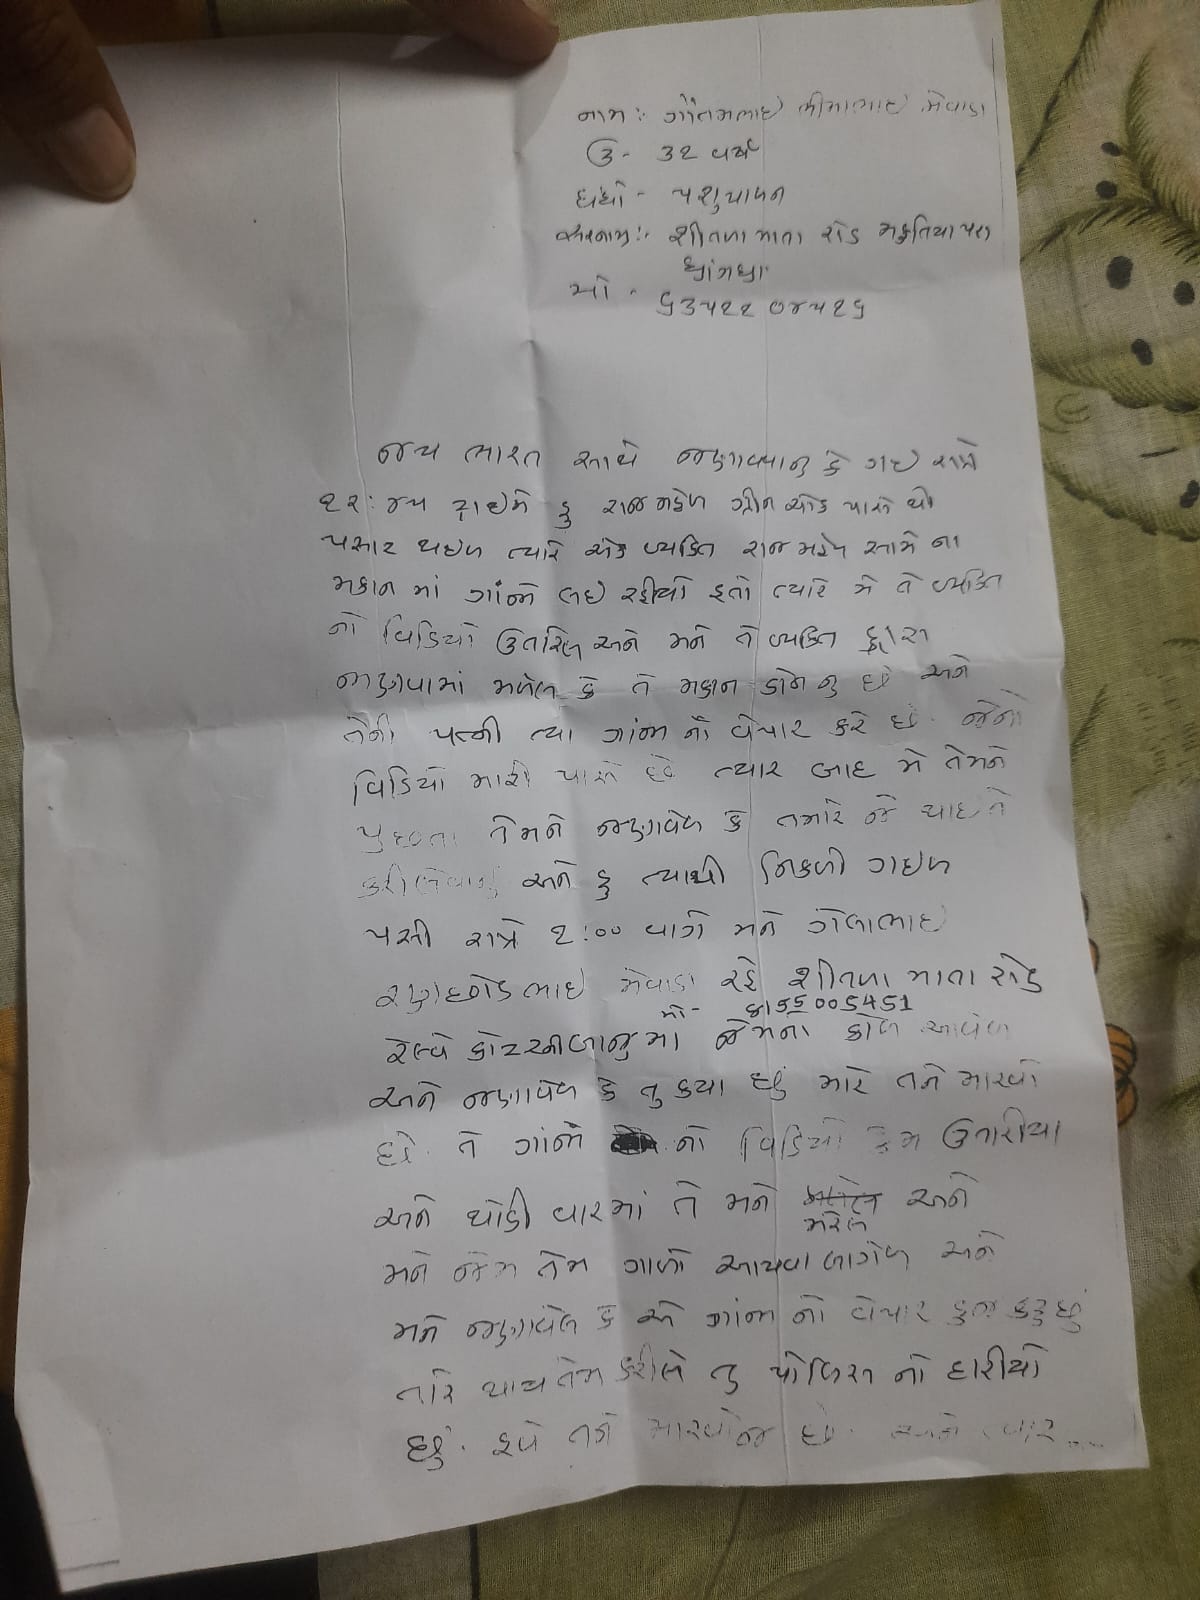 નામ: ગૌતમભાઈ ભીમાભાઈ મેવાડા
ઉ- ૩૨ વર્ષ
ધંધો - પશુપાલન
સરનામુ:- શીતળા માતા રોડ મફતિયા પરા
ધ્રાંગધ્રા
મો -
જય ભારત સાથે જણાવવાનુ કે ગઇ રાત્રે
ટાઇમે હુ રાજમહેલ ગ્રીન ચોક પાસે થી
પસાર થયેલ ત્યારે એક વ્યક્તિ રાજમહેલ સામે ના
મકાન માં ગાંજો લઇ રહીયો હતો ત્યારે મે તે વ્યક્તિ
નો વિડિયો ઉતારેલ અને મને તે વ્યક્તિ દ્વારા
જાણવામાં મળેલ કે તે મકાન કોનુ છે અને
તેની પત્ની ત્યા ગાંજા નો વેપાર કરે છે. જેનો
વિડિયો મારી પાસે છે ત્યાર બાદ મે તેમને
પુછતા તેમને જણાવેલ કે તમારે જે થાઇ તે
કરીલેવાનું અને હુ ત્યાથી નિકળી ગયેલ
પસી રાત્રે ૨:૦૦ વાગે મને ગેલાભાઇ
રણછોડભાઇ મેવાડા રહે શીતળા માતા રોડ
મો-
રેલ્વે કોટરનીબાજુમાં જેમનો કોલ આવેલ
અને જણાવેલ કે તુ કયા છું મારે તને મારવો
છે. તે ગાંજા નો વિડિયો કેમ ઉતારીયા
અને થોડી વારમાં તે મને અને
મારેલ
મને જેમ તેમ ગાળો આપવા લાગેલ અને
મને જણાવેલ કે એ ગાંજા નો વેપાર હુજ કરુ છું
તારે થાય તેમ કરીલે તુ પોલિસ નો
છું. હવે તને મારવોજ છે. અને